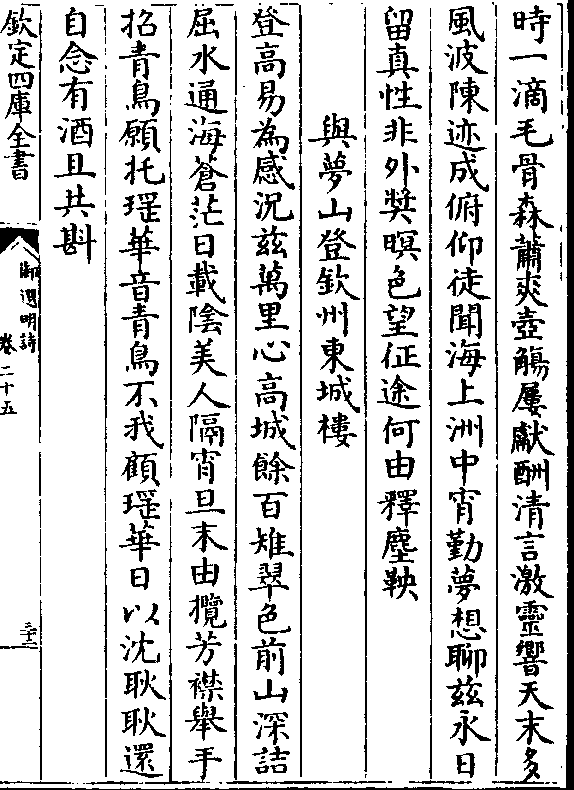 時一滴毛骨森蕭爽壺觴屢獻酬清言激靈響天末多
風波陳迹成俯仰徒聞海上洲中宵勤夢想聊兹永日
留真性非外奬暝色望征途何由釋塵鞅
與夢山登欽州東城樓
登高易為感況兹萬里心高城餘百雉翠色前山深詰
屈水通海蒼茫日載陰美人隔宵旦末由攬芳襟舉手
招青鳥願托瑶華音青鳥不我顧瑶華日以沈耿耿還
自念有酒且共斟
欽定四庫全書
御選明詩
卷二十五
三十二